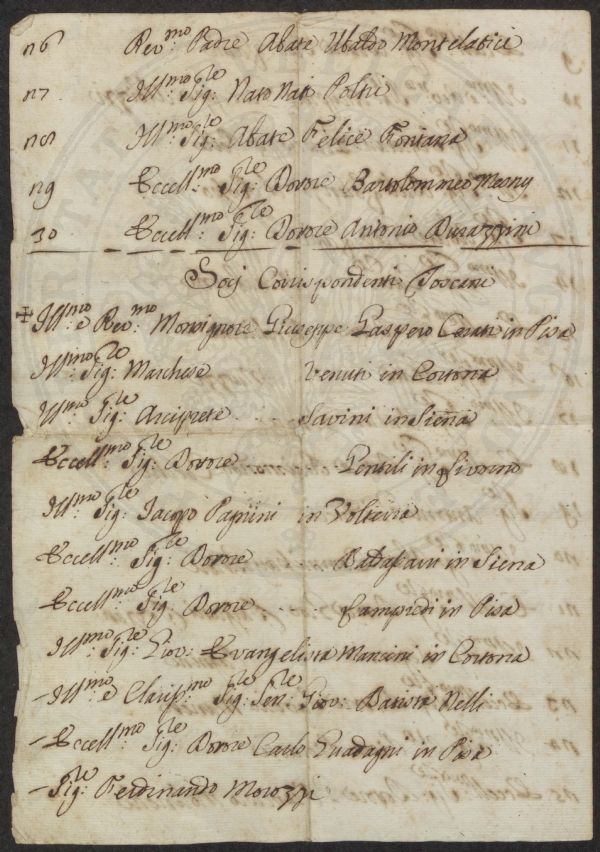 26 Rev.mo Padre Abate Ubaldo Montelatici
27 Ill.mo Sig.le Nato Nati Poltri
28 Ill.mo Sig.le Abate Felice Fontana
29 Eccell.mo Sig.le Dottore Bartolommeo Mesny
30 Eccell.mo Sig.le Dottore Antonio Durazzini
Socj Corrispondenti Toscani
✠ Ill.mo e Rev.mo Monsignore Giuseppe Gaspero Cerati in Pisa
Ill.mo Sig.le Marchese Venuti in Cortona
Ill.mo Sig.le Arciprete Savini in Siena
Eccell.mo Sig.le Dottore Gentili in Livorno
Ill.mo Sig.le Jacopo Pagnini in Volterra
Eccell.mo Sig.le Dottore in Siena
Eccell.mo Sig.le Dottore in Pisa
Ill.mo Sig.le Giov: Evangelista Mancini in Cortona
Ill.mo e Clariss.mo Sig.le Sen.le Giov: Batista Nelli
Eccell.mo Sig.le Dottore Carlo Guadagni in Pisa
Sig.le Ferdinando Morozzi